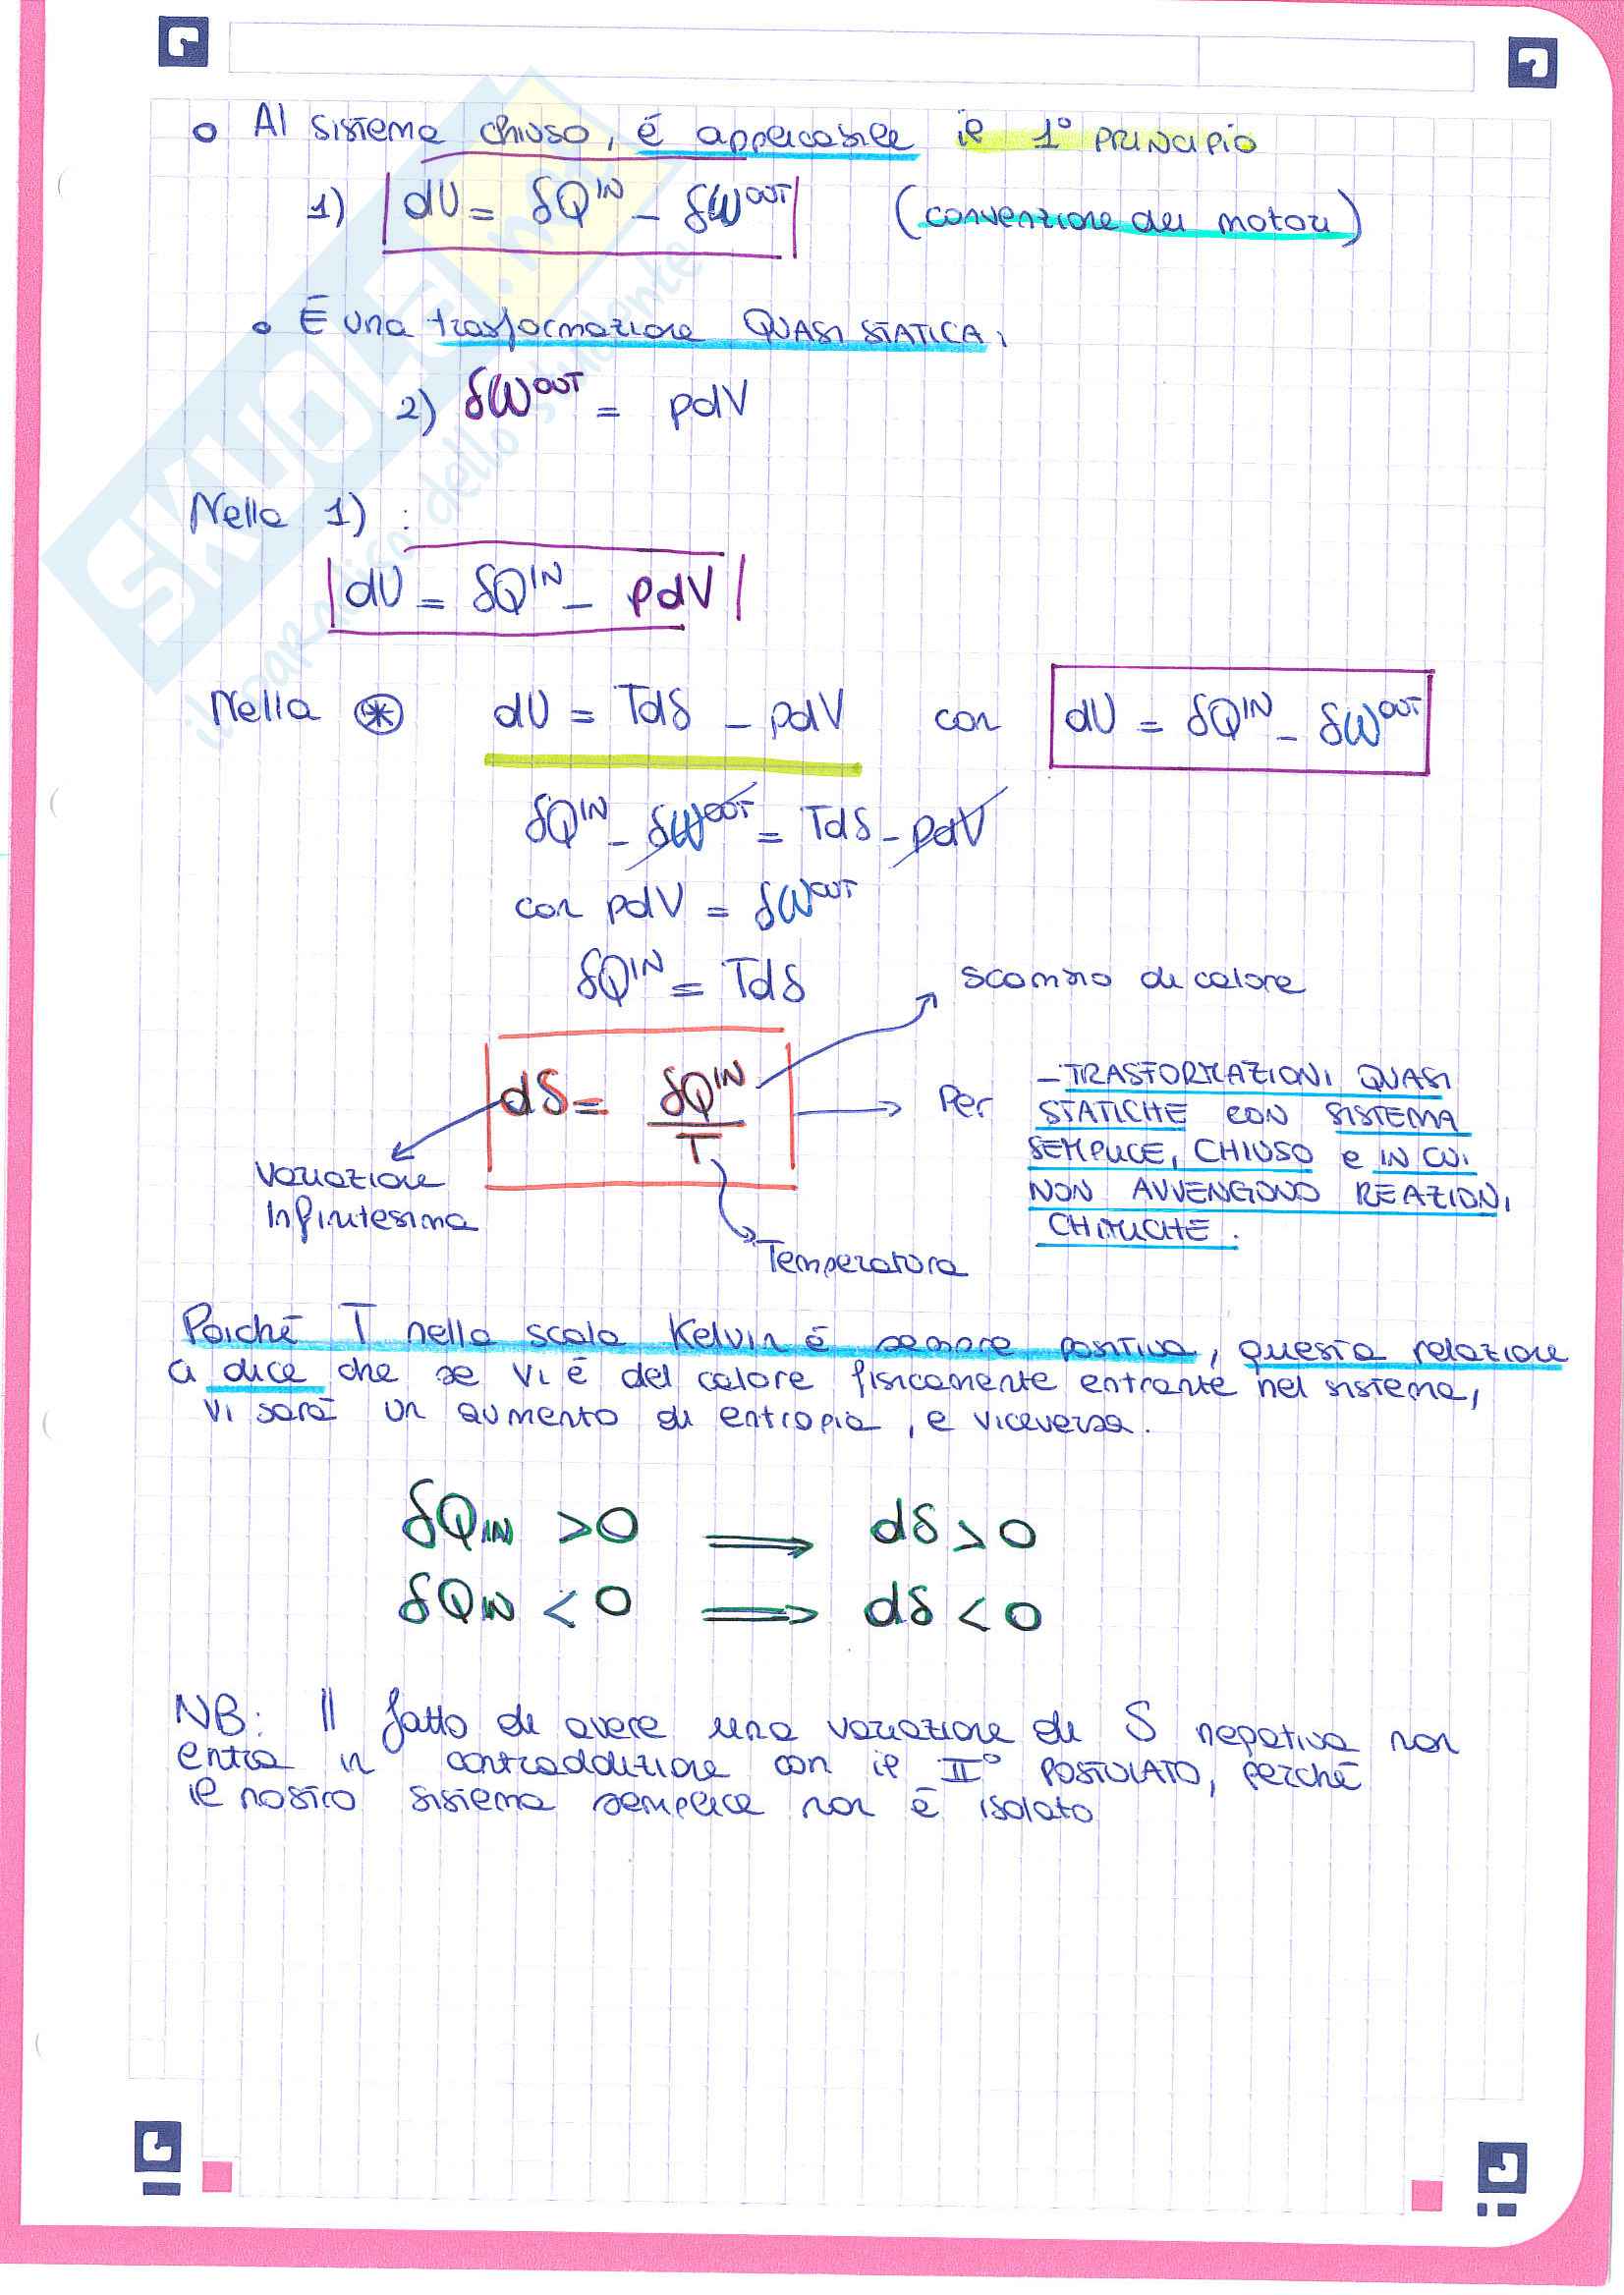 • Al sistema chiuso, é applicabile il 1° PRINCIPIO
1) dU = δQ^IN - δW^OUT (convenzione dei motori)
• É una trasformazione QUASI STATICA:
2) δW^OUT = pdV
Nella 1) :
dU = δQ^IN - pdV
Nella ⊛ dU = TdS - pdV con dU = δQ^IN - δW^OUT
δQ^IN - δW^OUT = TdS - pdV
con pdV = δW^OUT
δQ^IN = TdS
scambio di calore
dS = δQ^IN / T
Per
- TRASFORMAZIONI QUASI
STATICHE CON SISTEMA
SEMPLICE, CHIUSO e IN CUI
NON AVVENGONO REAZIONI
CHIMICHE.
variazione
Infinitesima
Temperatura
Poiché T nella scala Kelvin é sempre positiva, questa relazione
ci dice che se vi é del calore fisicamente entrante nel sistema,
vi sará un aumento di entropia, e viceversa.
δQ_IN > 0 ⟹ dS > 0
δQ_IN < 0 ⟹ dS < 0
NB: Il fatto di avere una variazione di S negativa non
entra in contraddizione con il II° POSTULATO, perché
il nostro sistema semplice non é isolato
SKUOLA.net
il paradiso dello studente